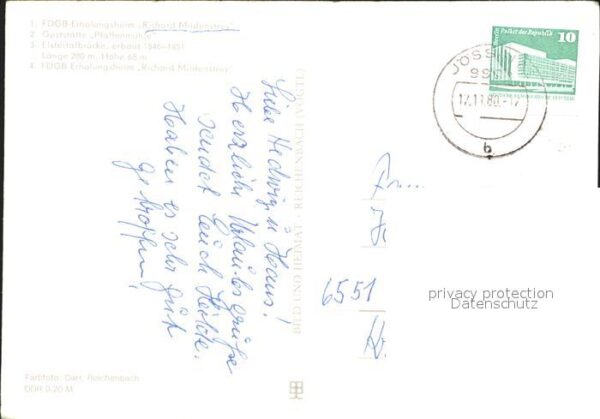 1. FDGB-Erholungsheim „Richard Mildenstrey“
2. Gaststätte „Pfaffenmühle“
3. Elstertalbrücke, erbaut 1846–1851
Länge 280 m, Höhe 68 m
4. FDGB-Erholungsheim „Richard Mildenstrey“
Liebe Hedwig u. Hans!
Herzliche Urlaubsgrüße
sendet Euch Hilde.
Haben es sehr gut
getroffen!
BILD UND HEIMAT · REICHENBACH (VOGTL)
Farbfoto: Darr, Reichenbach
DDR 0,20 M
Berlin, Palast der Republik
10
JÖSS
12.11.80.-17
b
6551
privacy protection
Datenschutz